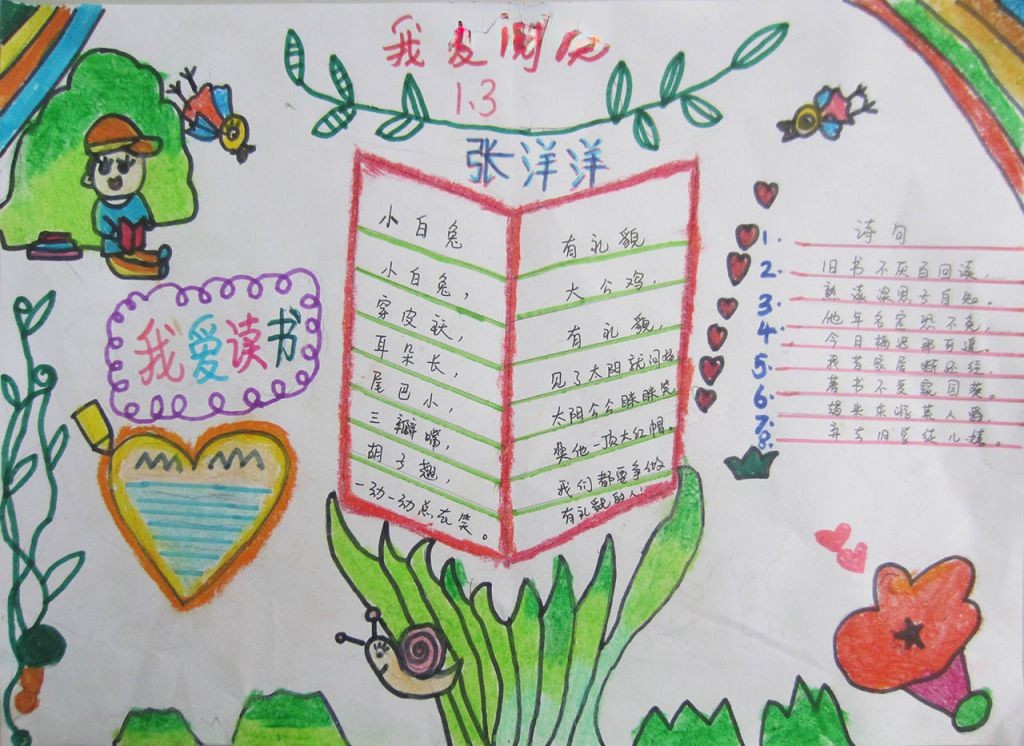 我爱阅读
1.3
张洋洋
我爱读书
小白兔
小白兔，
穿皮袄，
耳朵长，
尾巴小，
三瓣嘴，
胡子翘，
一动一动总在笑。
有礼貌
大公鸡，
有礼貌，
见了太阳就问好
太阳公公眯眯笑
奖他一顶大红帽。
我们都要争做
有礼貌的人！
诗句
1.
2. 旧书不厌百回读，
3. 熟读深思子自知。
4. 他年名宦恐不免，
5. 今日栖迟那可追。
6. 我昔家居断还往，
7. 著书不复窥园葵。
8. 朅来东游慕人爵，
弃去旧学从儿嬉。